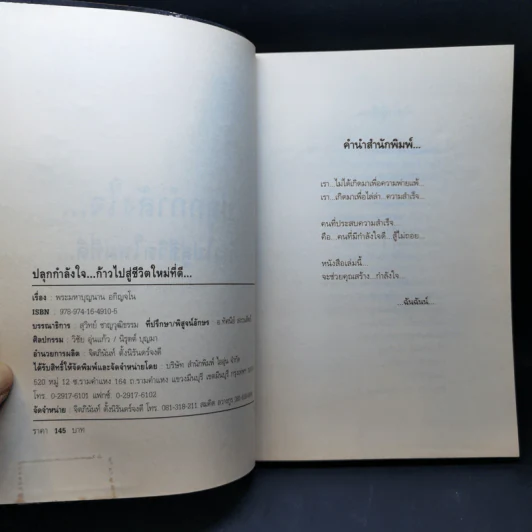 ปลุกกำลังใจ...ก้าวไปสู่ชีวิตใหม่ที่ดี...
เรื่อง : พระมหาบุญนาน อกิญจโน
ISBN : 978-974-16-4910-5
บรรณาธิการ : สุวิทย์ ชาญวุฒิธรรม ที่ปรึกษา/พิสูจน์อักษร :
ศิลปกรรม : วิชัย อุ่นแก้ว / นิรุตต์ บุญมา
อำนวยการผลิต : จิตภินันท์ ตั้งนิรันดร์จงดี
ได้รับสิทธิ์ให้จัดพิมพ์และจัดจำหน่ายโดย : บริษัท สำนักพิมพ์
520 หมู่ 12 ซ.รามคำแหง 164 ถ.รามคำแหง แขวงมีนบุรี เขตมีนบุรี กรุงเทพฯ
โทร. 0-2917-6101 แฟกซ์. 0-2917-6102
จัดจำหน่าย : จิตภินันท์ ตั้งนิรันดร์จงดี โทร. 081-318-311
ราคา 145 บาท
คำนำสำนักพิมพ์...
เรา...ไม่ได้เกิดมาเพื่อความพ่ายแพ้...
เรา...เกิดมาเพื่อไล่ล่า...ความสำเร็จ...
คนที่ประสบความสำเร็จ...
คือ...คนที่มีกำลังใจดี...สู้ไม่ถอย...
หนังสือเล่มนี้...
จะช่วยคุณสร้าง...กำลังใจ...
...ฉันฉันน์...